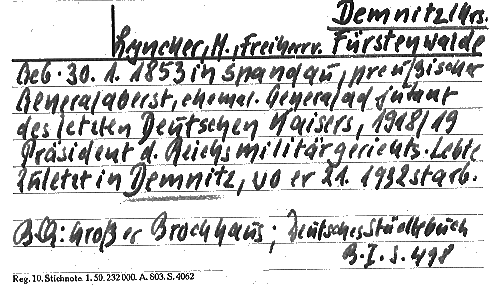 Demnitz/Krs.
Lyncker, M., Freiherr v. Fürstenwalde
Geb. 30. 1. 1853 in Spandau, preußischer
Generaloberst, ehemal. Generaladjutant
des letzten Deutschen Kaisers, 1918/19
Präsident d. Reichsmilitärgerichts. Lebte
zuletzt in Demnitz, wo er 21. 1932 starb.
B.Q: Großer Brockhaus; Deutsches Städtebuch
B. I. S. 498
Reg. 10. Stichnote. 1. 50. 232 000. A. 803. S. 4062